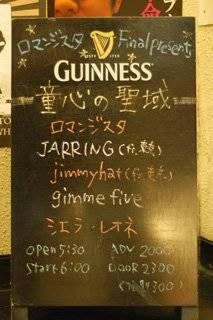 ロマンジスタ Final presents
ESTD 1759
GUINNESS
童心の聖域
ロマンジスタ
JARRING
jimmyhat
gimme five
シエラ・レオネ
open 5:30 ADV 2000
Start 6:00 DOOR 2300